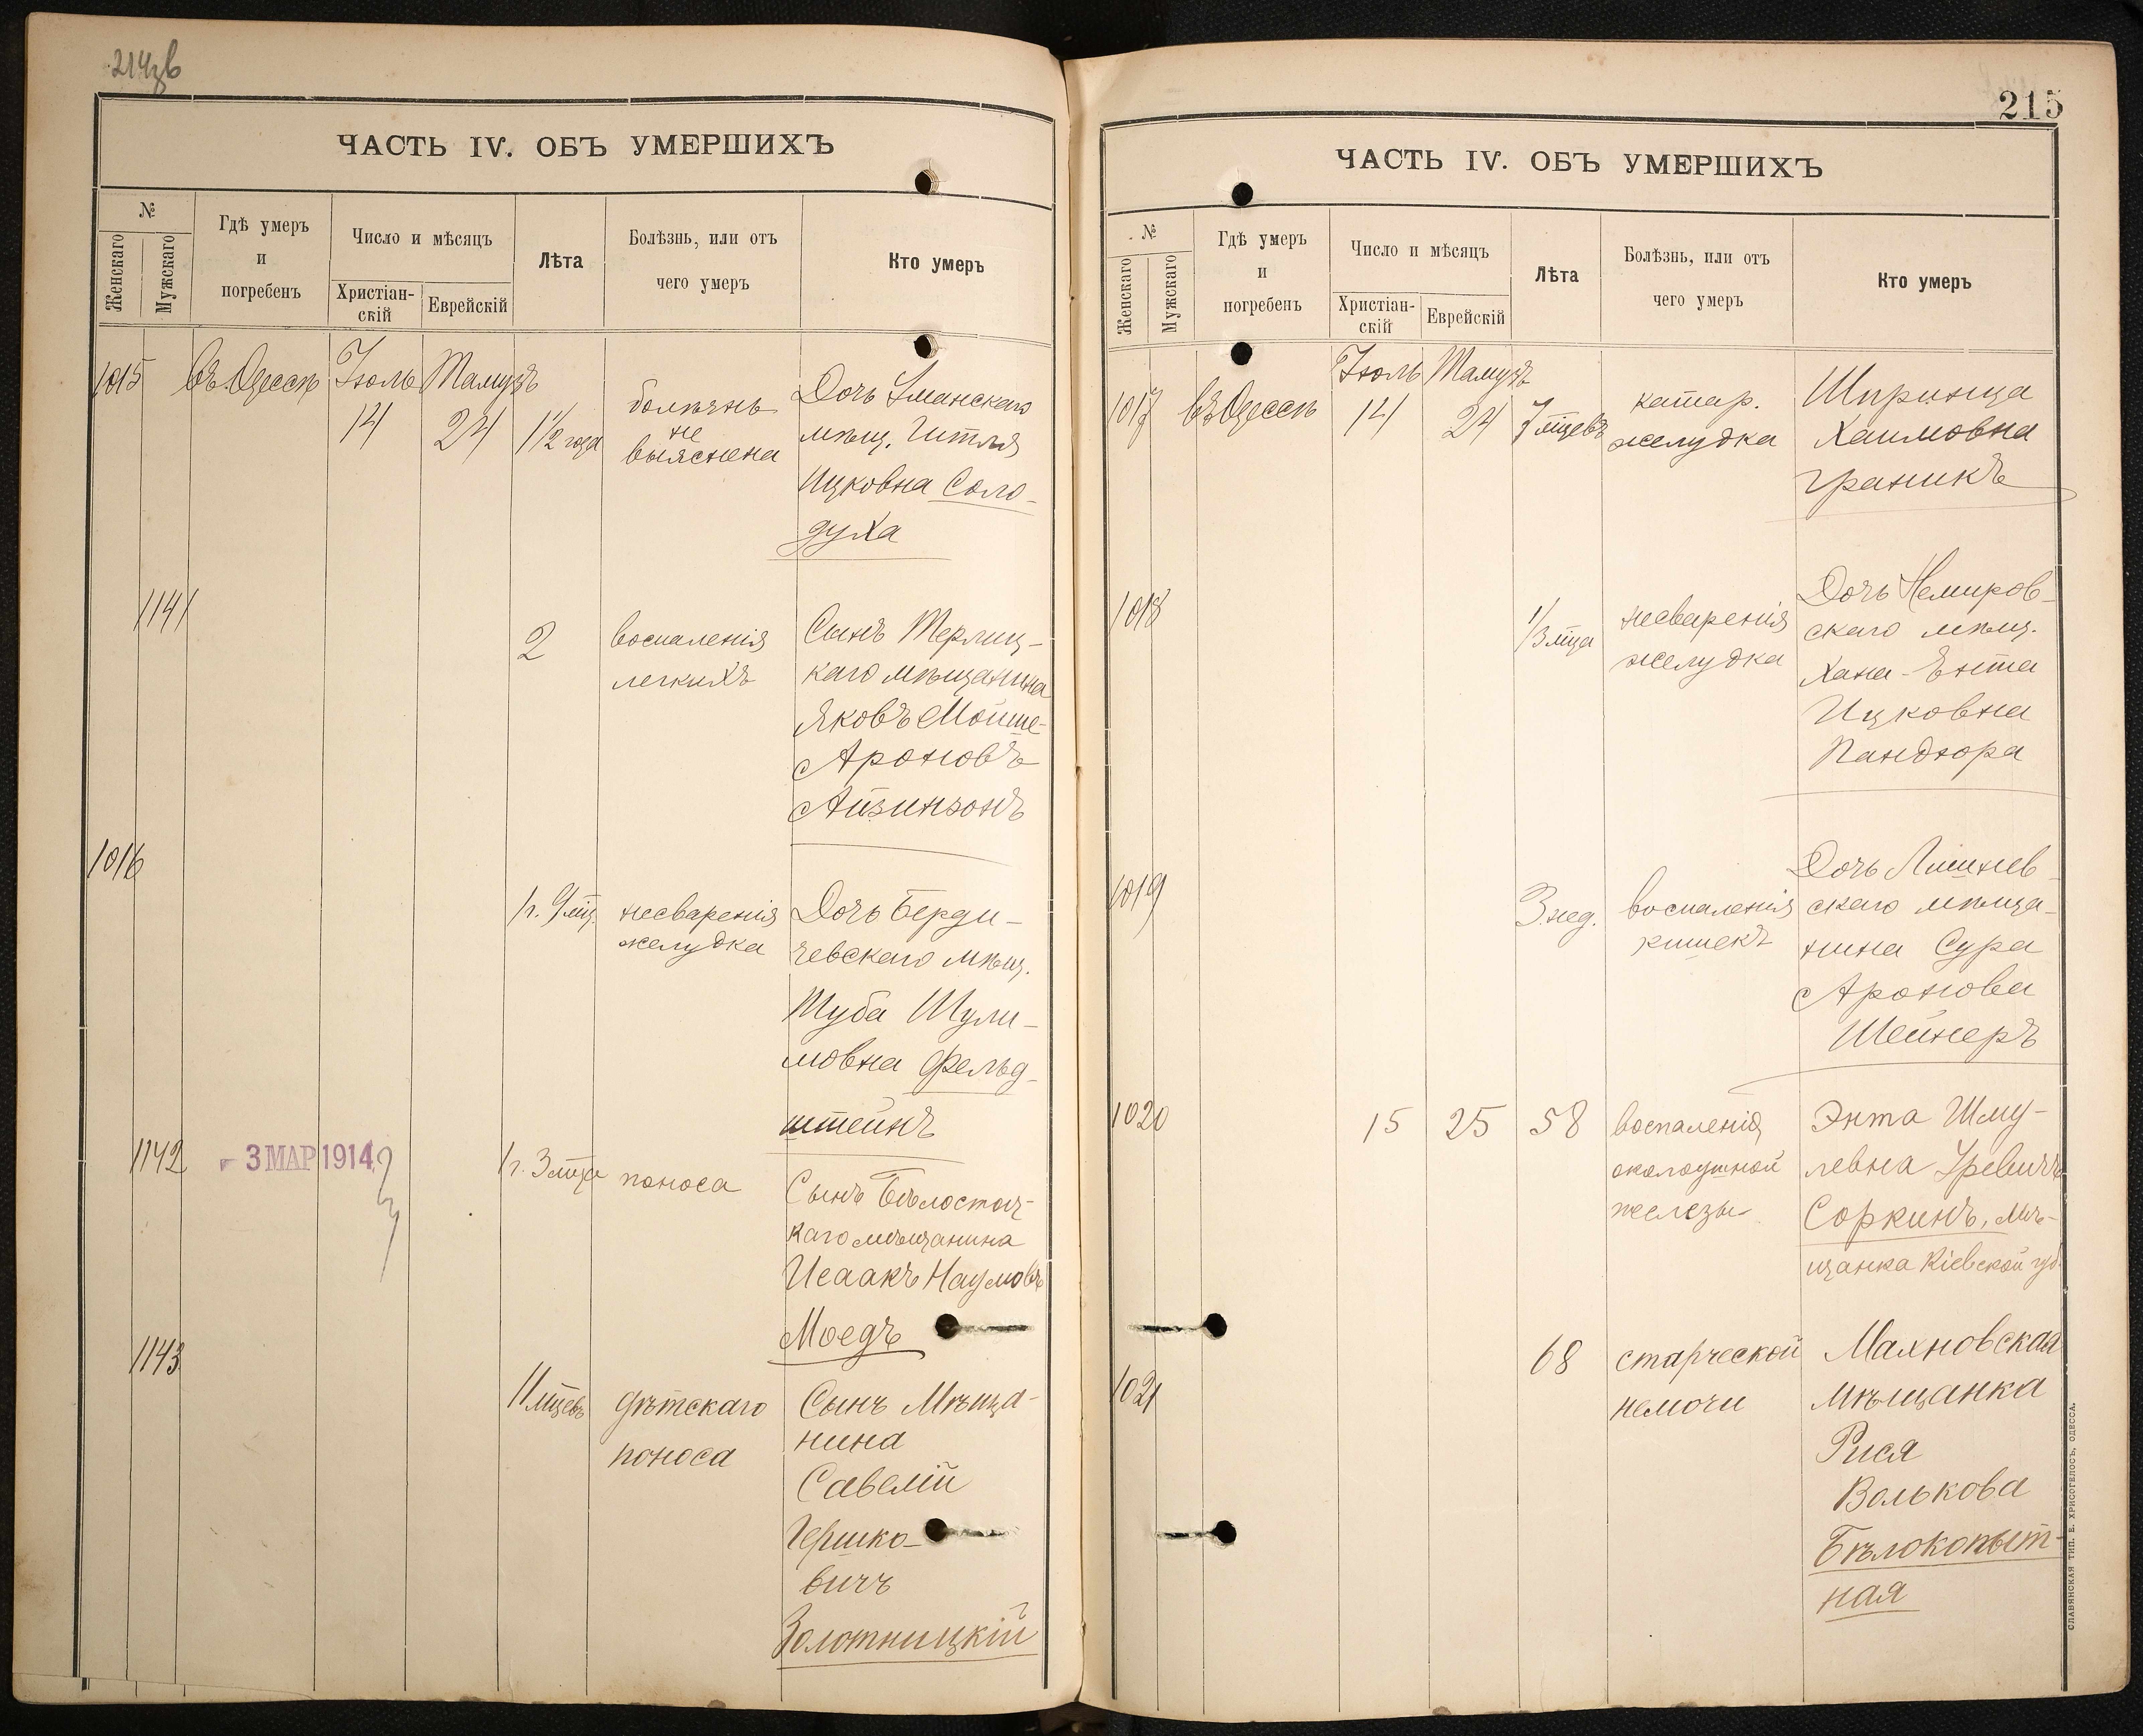 214зв
ЧАСТЬ IV. ОБЪ УМЕРШИХЪ
№
Женскаго
Мужскаго
Гдѣ умеръ
и
погребенъ
Число и мѣсяцъ
Христіан-
скій
Еврейскій
Лѣта
Болѣзнь, или отъ
чего умеръ
Кто умеръ
1015
въ Одессѣ
Іюль
14
Тамузъ
24
1½ года
болѣзнь
не
выяснена
Дочь Уманскаго
мѣщ. Гитля
Ицковна Соло-
духа
1141
2
воспаленія
легкихъ
Сынъ Терлиц-
каго мѣщанина
Яковъ Мойше-
Ароновъ
Айзинзонъ
1016
1 г. 9 мц.
несваренія
желудка
Дочь Берди-
чевскаго мѣщ.
Туба Шули-
мовна Фельд-
штейнъ
1142
3 МАР 1914
1 г. 3 мца
поноса
Сынъ Бѣлосток-
каго мѣщанина
Исаакъ Наумовъ
Моедъ
1143
11 мцевъ
дѣтскаго
поноса
Сынъ Мѣща-
нина
Савелій
Гершко-
вичъ
Золотницкій
215
ЧАСТЬ IV. ОБЪ УМЕРШИХЪ
№
Женскаго
Мужскаго
Гдѣ умеръ
и
погребенъ
Число и мѣсяцъ
Христіан-
скій
Еврейскій
Лѣта
Болѣзнь, или отъ
чего умеръ
Кто умеръ
1017
въ Одессѣ
Іюль
14
Тамузъ
24
7 мцевъ
катар.
желудка
Шпринца
Хаимовна
Граникъ
1018
1/3 мца
несваренія
желудка
Дочь Немиров-
скаго мѣщ.
Хана-Ента
Ицковна
Пандзора
1019
3 нед.
воспаленія
кишекъ
Дочь
скаго мѣща-
нина Сура
Аронова
Шейнеръ
1020
15
25
58
воспаленія
околоушной
железы
Энта Шму-
левна Гревичъ
Соркинъ, мѣ-
щанка Кіевской губ.
1021
68
старческой
немочи
Махновская
мѣщанка
Рися
Волькова
Бѣлокопыт-
ная
СЛАВЯНСКАЯ ТИП. Е. ХРИСОГЕЛОСЪ, ОДЕССА.